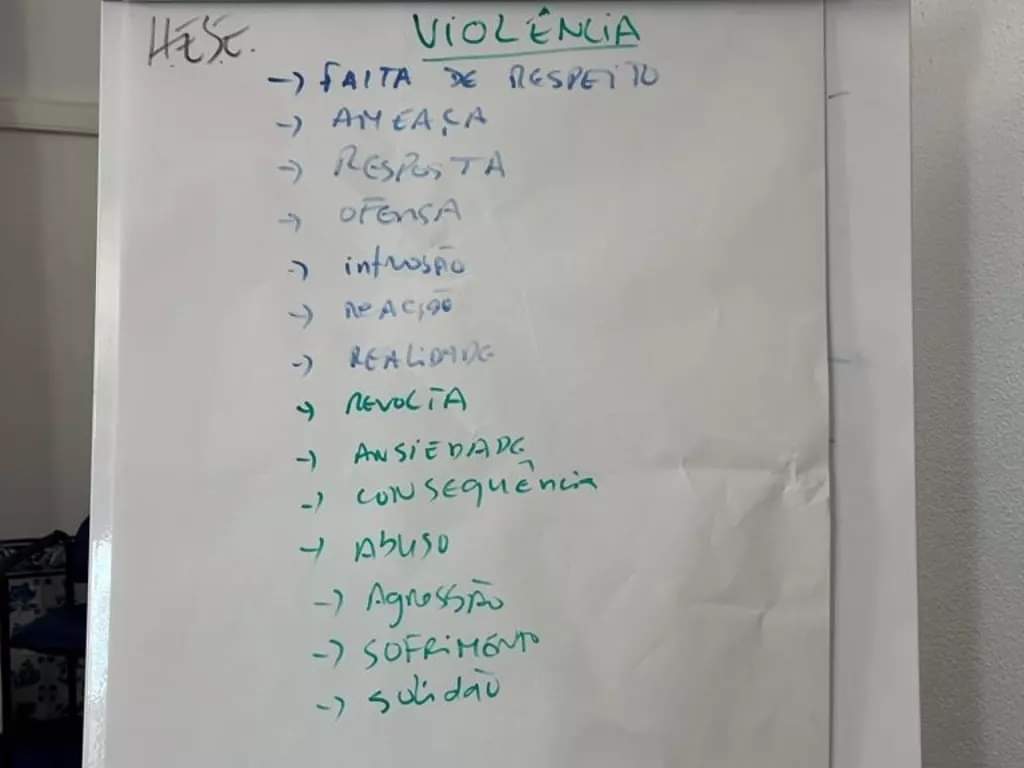 HESE.
VIOLÊNCIA
-> FALTA DE RESPEITO
-> AMEAÇA
-> RESPOSTA
-> OFENSA
-> intrusão
-> REAÇÃO
-> REALIDADE
-> REVOLTA
-> ANSIEDADE
-> CONSEQUÊNCIA
-> ABUSO
-> AgRESSÃO
-> SOFRIMENTO
-> Solidão